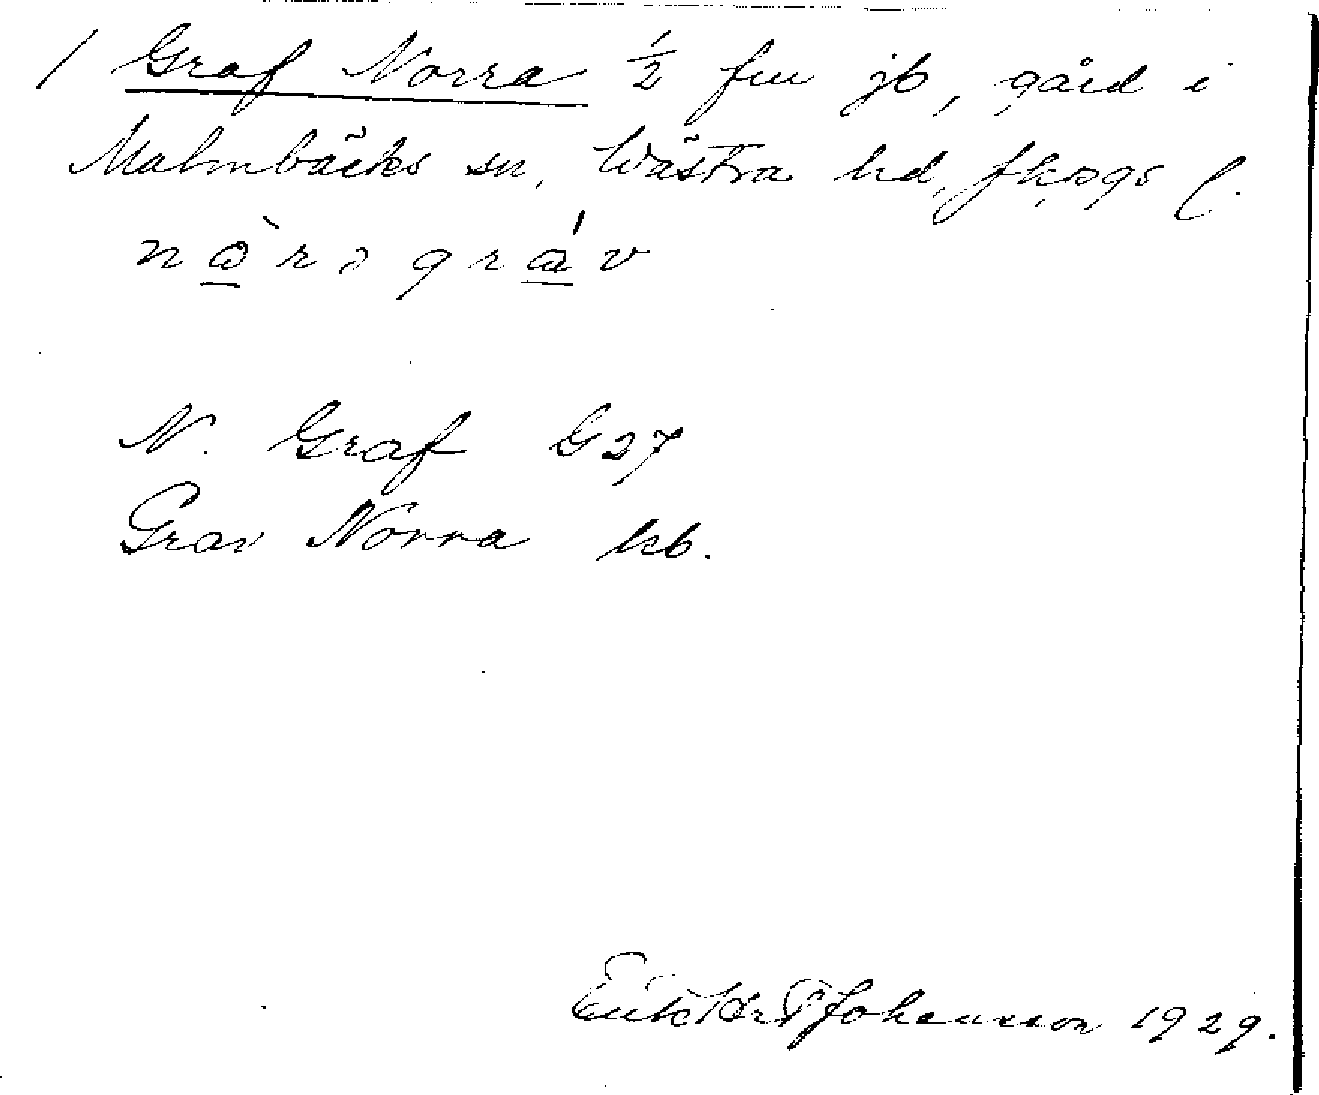 1 Graf Norra ½ fm jb, gård i
Malmbäcks sn, Västra hd, Jkpgs l.
nòrə gráv
N. Graf G27
Grav Norra kb.
Johansson 1929.